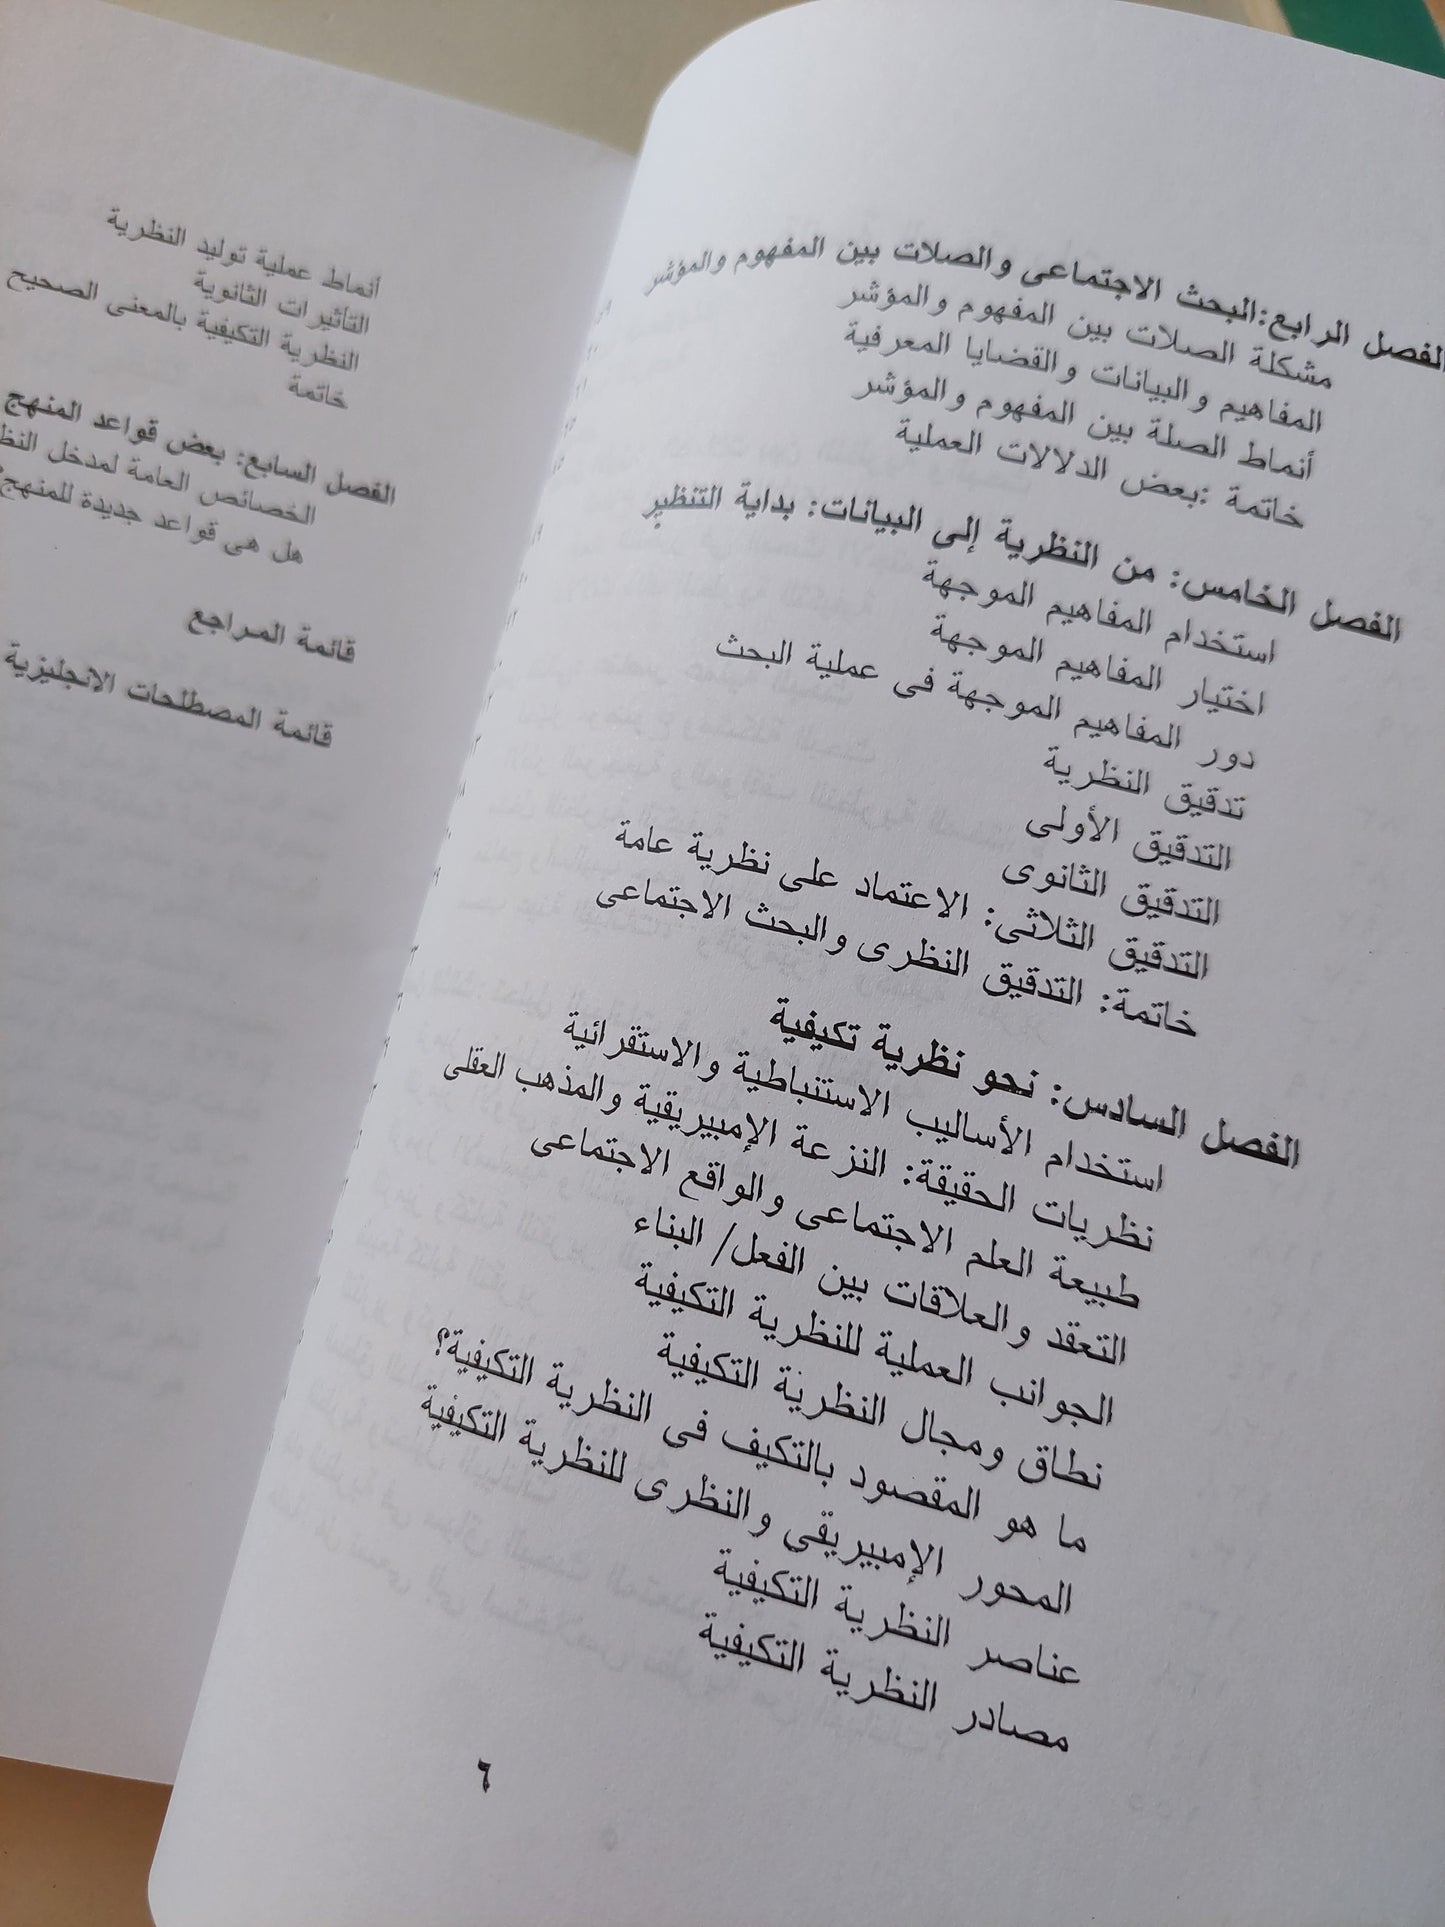 الفصل الرابع:البحث الاجتماعى والصلات بين المفهوم والمؤشر
مشكلة الصلات بين المفهوم والمؤشر
المفاهيم والبيانات والقضايا المعرفية
أنماط الصلة بين المفهوم والمؤشر
خاتمة :بعض الدلالات العملية
الفصل الخامس: من النظرية إلى البيانات: بداية التنظير
استخدام المفاهيم الموجهة
اختيار المفاهيم الموجهة
دور المفاهيم الموجهة فى عملية البحث
تدقيق النظرية
التدقيق الأولى
التدقيق الثانوى
التدقيق الثلاثى: الاعتماد على نظرية عامة
خاتمة: التدقيق النظرى والبحث الاجتماعى
الفصل السادس: نحو نظرية تكيفية
استخدام الأساليب الاستنباطية والاستقرائية
نظريات الحقيقة: النزعة الإمبيريقية والمذهب العقلى
طبيعة العلم الاجتماعى والواقع الاجتماعى
التعقد والعلاقات بين الفعل/ البناء
الجوانب العملية للنظرية التكيفية
نطاق ومجال النظرية التكيفية
ما هو المقصود بالتكيف فى النظرية التكيفية؟
المحور الإمبيريقى والنظرى للنظرية التكيفية
عناصر النظرية التكيفية
مصادر النظرية التكيفية
٦
أنماط عملية توليد النظرية
التأثيرات الثانوية
النظرية التكيفية بالمعنى الصحيح
خاتمة
الفصل السابع: بعض قواعد المنهج
الخصائص العامة لمدخل
هل هى قواعد جديدة للمنهج
قائمة المراجع
قائمة المصطلحات الانجليزية